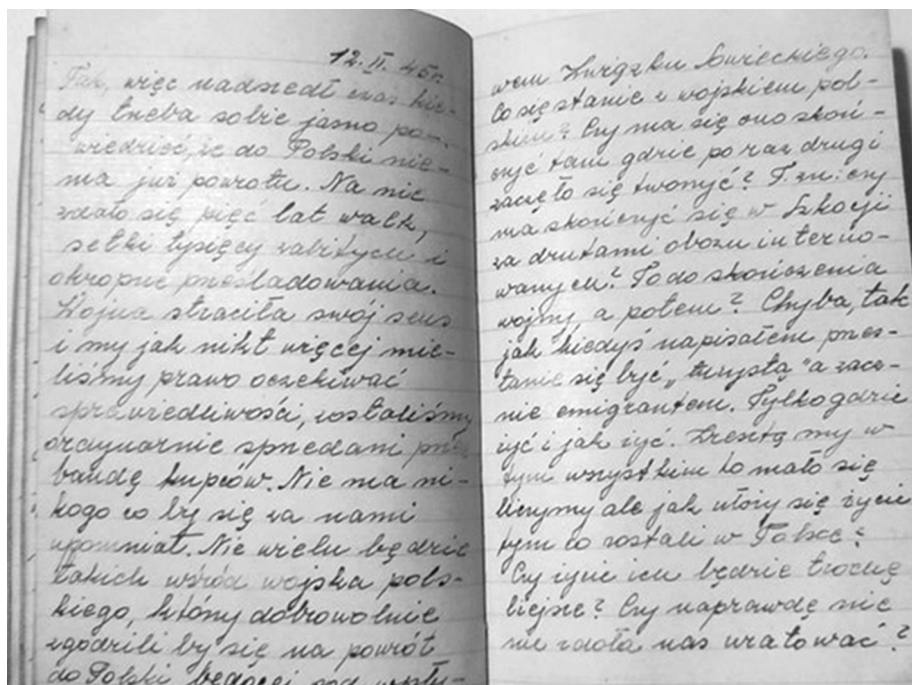 12. II. 45r.
Tak, więc nadszedł czas kie-
dy trzeba sobie jasno po-
wiedzieć, że do Polski nie-
ma już powrotu. Na nic
zdało się pięć lat walk,
setki tysięcy zabitych i
okropne prześladowania.
Wojna straciła swój sens
i my jak nikt więcej mie-
liśmy prawo oczekiwać
sprawiedliwości, zostaliśmy
ordynarnie sprzedani przez
bandę kupców. Nie ma ni-
kogo co by się za nami
upomniał. Nie wielu będzie
takich wśród wojska pols-
kiego, którzy dobrowolnie
zgodzili by się na powrót
do Polski będącej pod wpły-
wem Związku Sowieckiego.
Co się stanie z wojskiem pol-
skim? Czy ma się ono skoń-
czyć tam gdzie po raz drugi
zaczęło się tworzyć? T. zn: czy
ma skończyć się w Szkocji
za drutami obozu interno-
wanych? To do skończenia
wojny a potem? Chyba, tak
jak kiedyś napisałem przes-
tanie się być „turystą" a zacz-
nie emigrantem. Tylko gdzie
żyć i jak żyć. Zresztą my w
tym wszystkim to mało się
liczymy ale jak ułoży się życie
tym co zostali w Polsce?
Czy życie ich będzie trochę
lżejsze? Czy naprawdę nic
nie zdoła nas uratować?